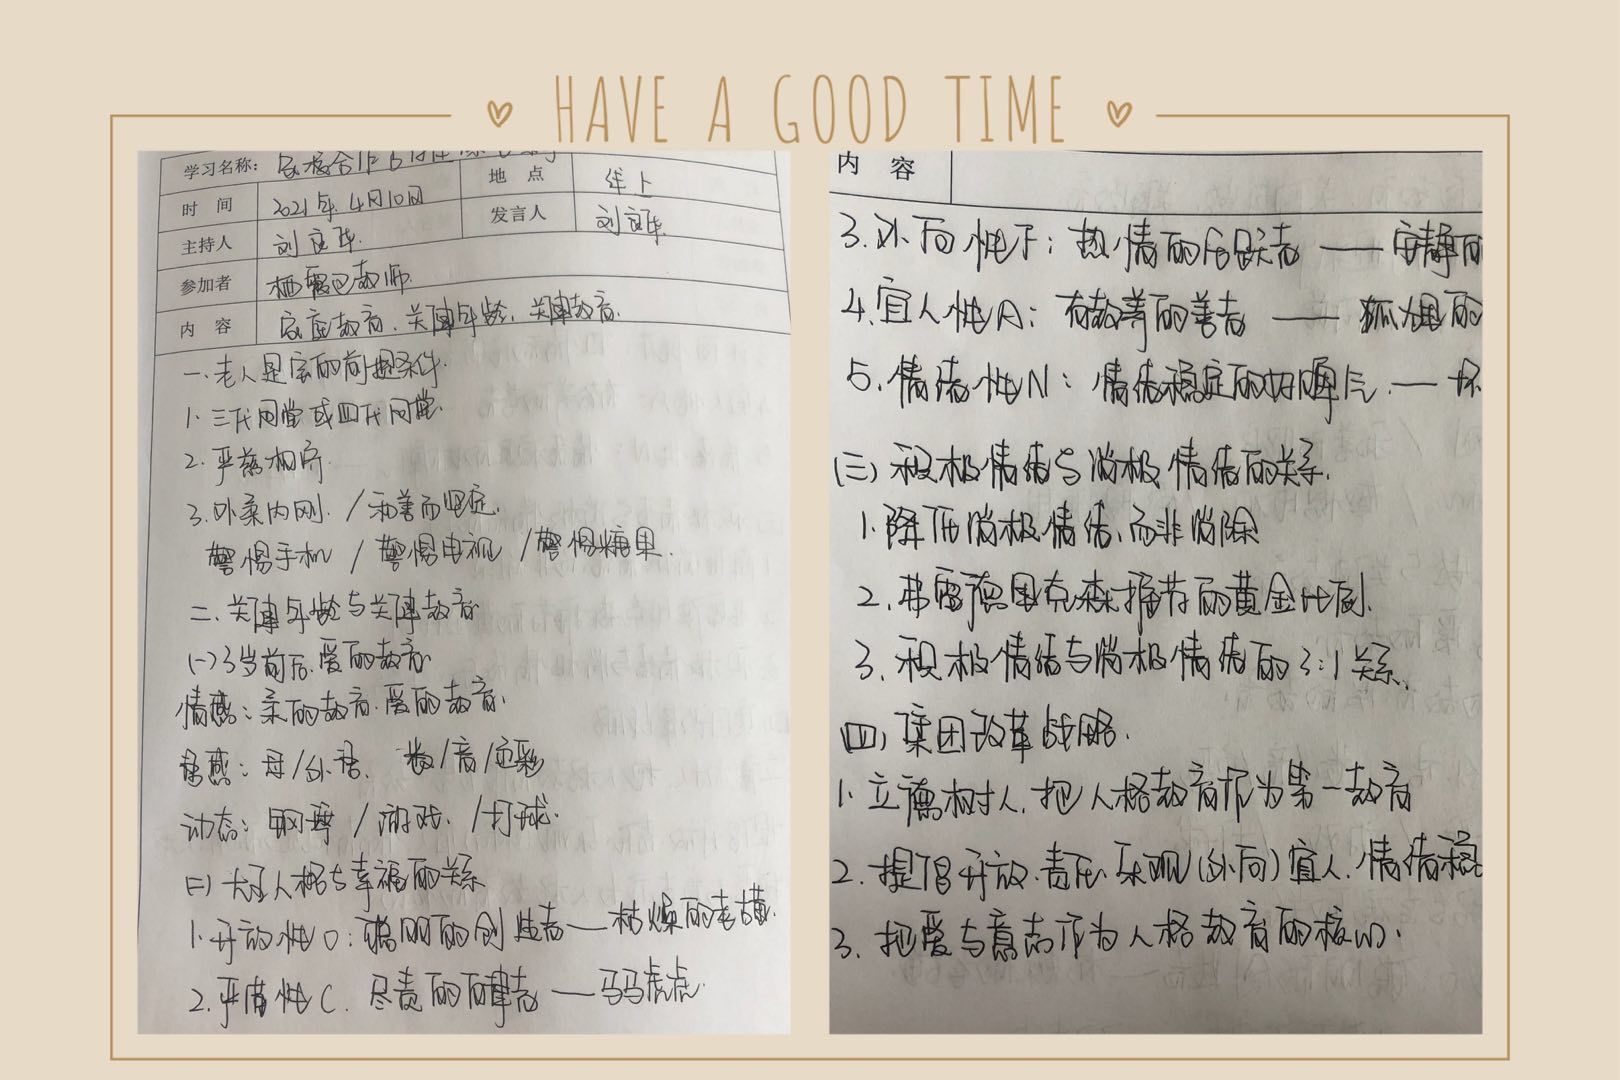 HAVE A GOOD TIME
学习名称: 家校合作
时 间 2021年4月10日 地 点 线上
主持人 刘 发言人 刘
参加者 栖霞 教师
内 容 家庭教育、关键年龄、关键教育.
一. 老人是宝的前提条件.
1. 三代同堂或四代同堂.
2. 严慈相济.
3. 外柔内刚. / 和善而坚定.
警惕手机 / 警惕电视 / 警惕糖果.
二. 关键年龄与关键教育
(一) 3岁前后. 爱的教育.
情感: 柔的教育. 爱的教育.
母/外语. 数/音/色彩
动态: 钢琴 / 游戏. /打球.
(二) 大五人格与幸福的关系
1. 开放性O: 聪明的创造者——枯燥的老古董.
2. 严谨性C. 尽责的 ——马马虎虎.
内 容
3. 外向性 : 热情的 ——安静的
4. 宜人性A: 有教养的善者 —— 的
5. 情绪性N: 情绪稳定的好脾气. — 坏
(三) 积极情绪与消极情绪的关系.
1. 降低消极情绪, 而非消除
2. 弗雷德里克森推荐的黄金比例.
3. 积极情绪与消极情绪的3:1关系.
(四) 集团改革战略.
1. 立德树人, 把人格教育作为第一教育
2. 提倡开放. 责任. 乐观(外向) 宜人. 情绪稳
3. 把爱与意志作为人格教育的核心.